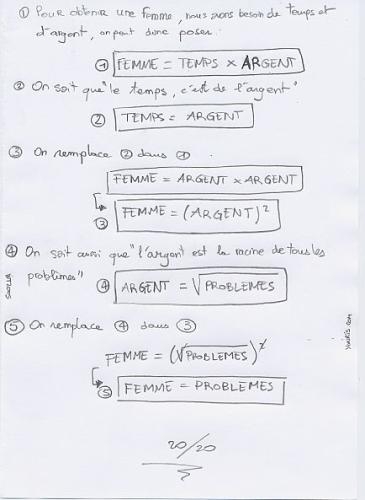 ① Pour obtenir une femme, nous avons besoin de temps et
d'argent, on peut donc poser :
① FEMME = TEMPS x ARGENT
② On sait que "le temps, c'est de l'argent"
② TEMPS = ARGENT
③ On remplace ② dans ①.
FEMME = ARGENT x ARGENT
③ FEMME = (ARGENT)²
④ On sait aussi que "l'argent est la racine de tous les
problèmes"
④ ARGENT = √PROBLEMES
⑤ On remplace ④ dans ③
FEMME = (√PROBLEMES)²
⑤ FEMME = PROBLEMES
20/20